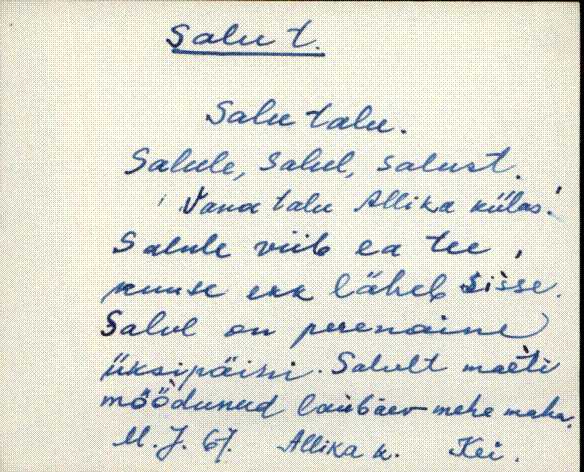 Salu t.
Salu talu.
Salule, Salul, Salust.
Vana talu Allika külas.
Salule viib ea tee,
kuuse ekk läheb sisse.
Salul on perenaine
üksipäini. Salult maeti
möödunud laubäev mehe maha.
M. J. 67. Allika k. Kei.